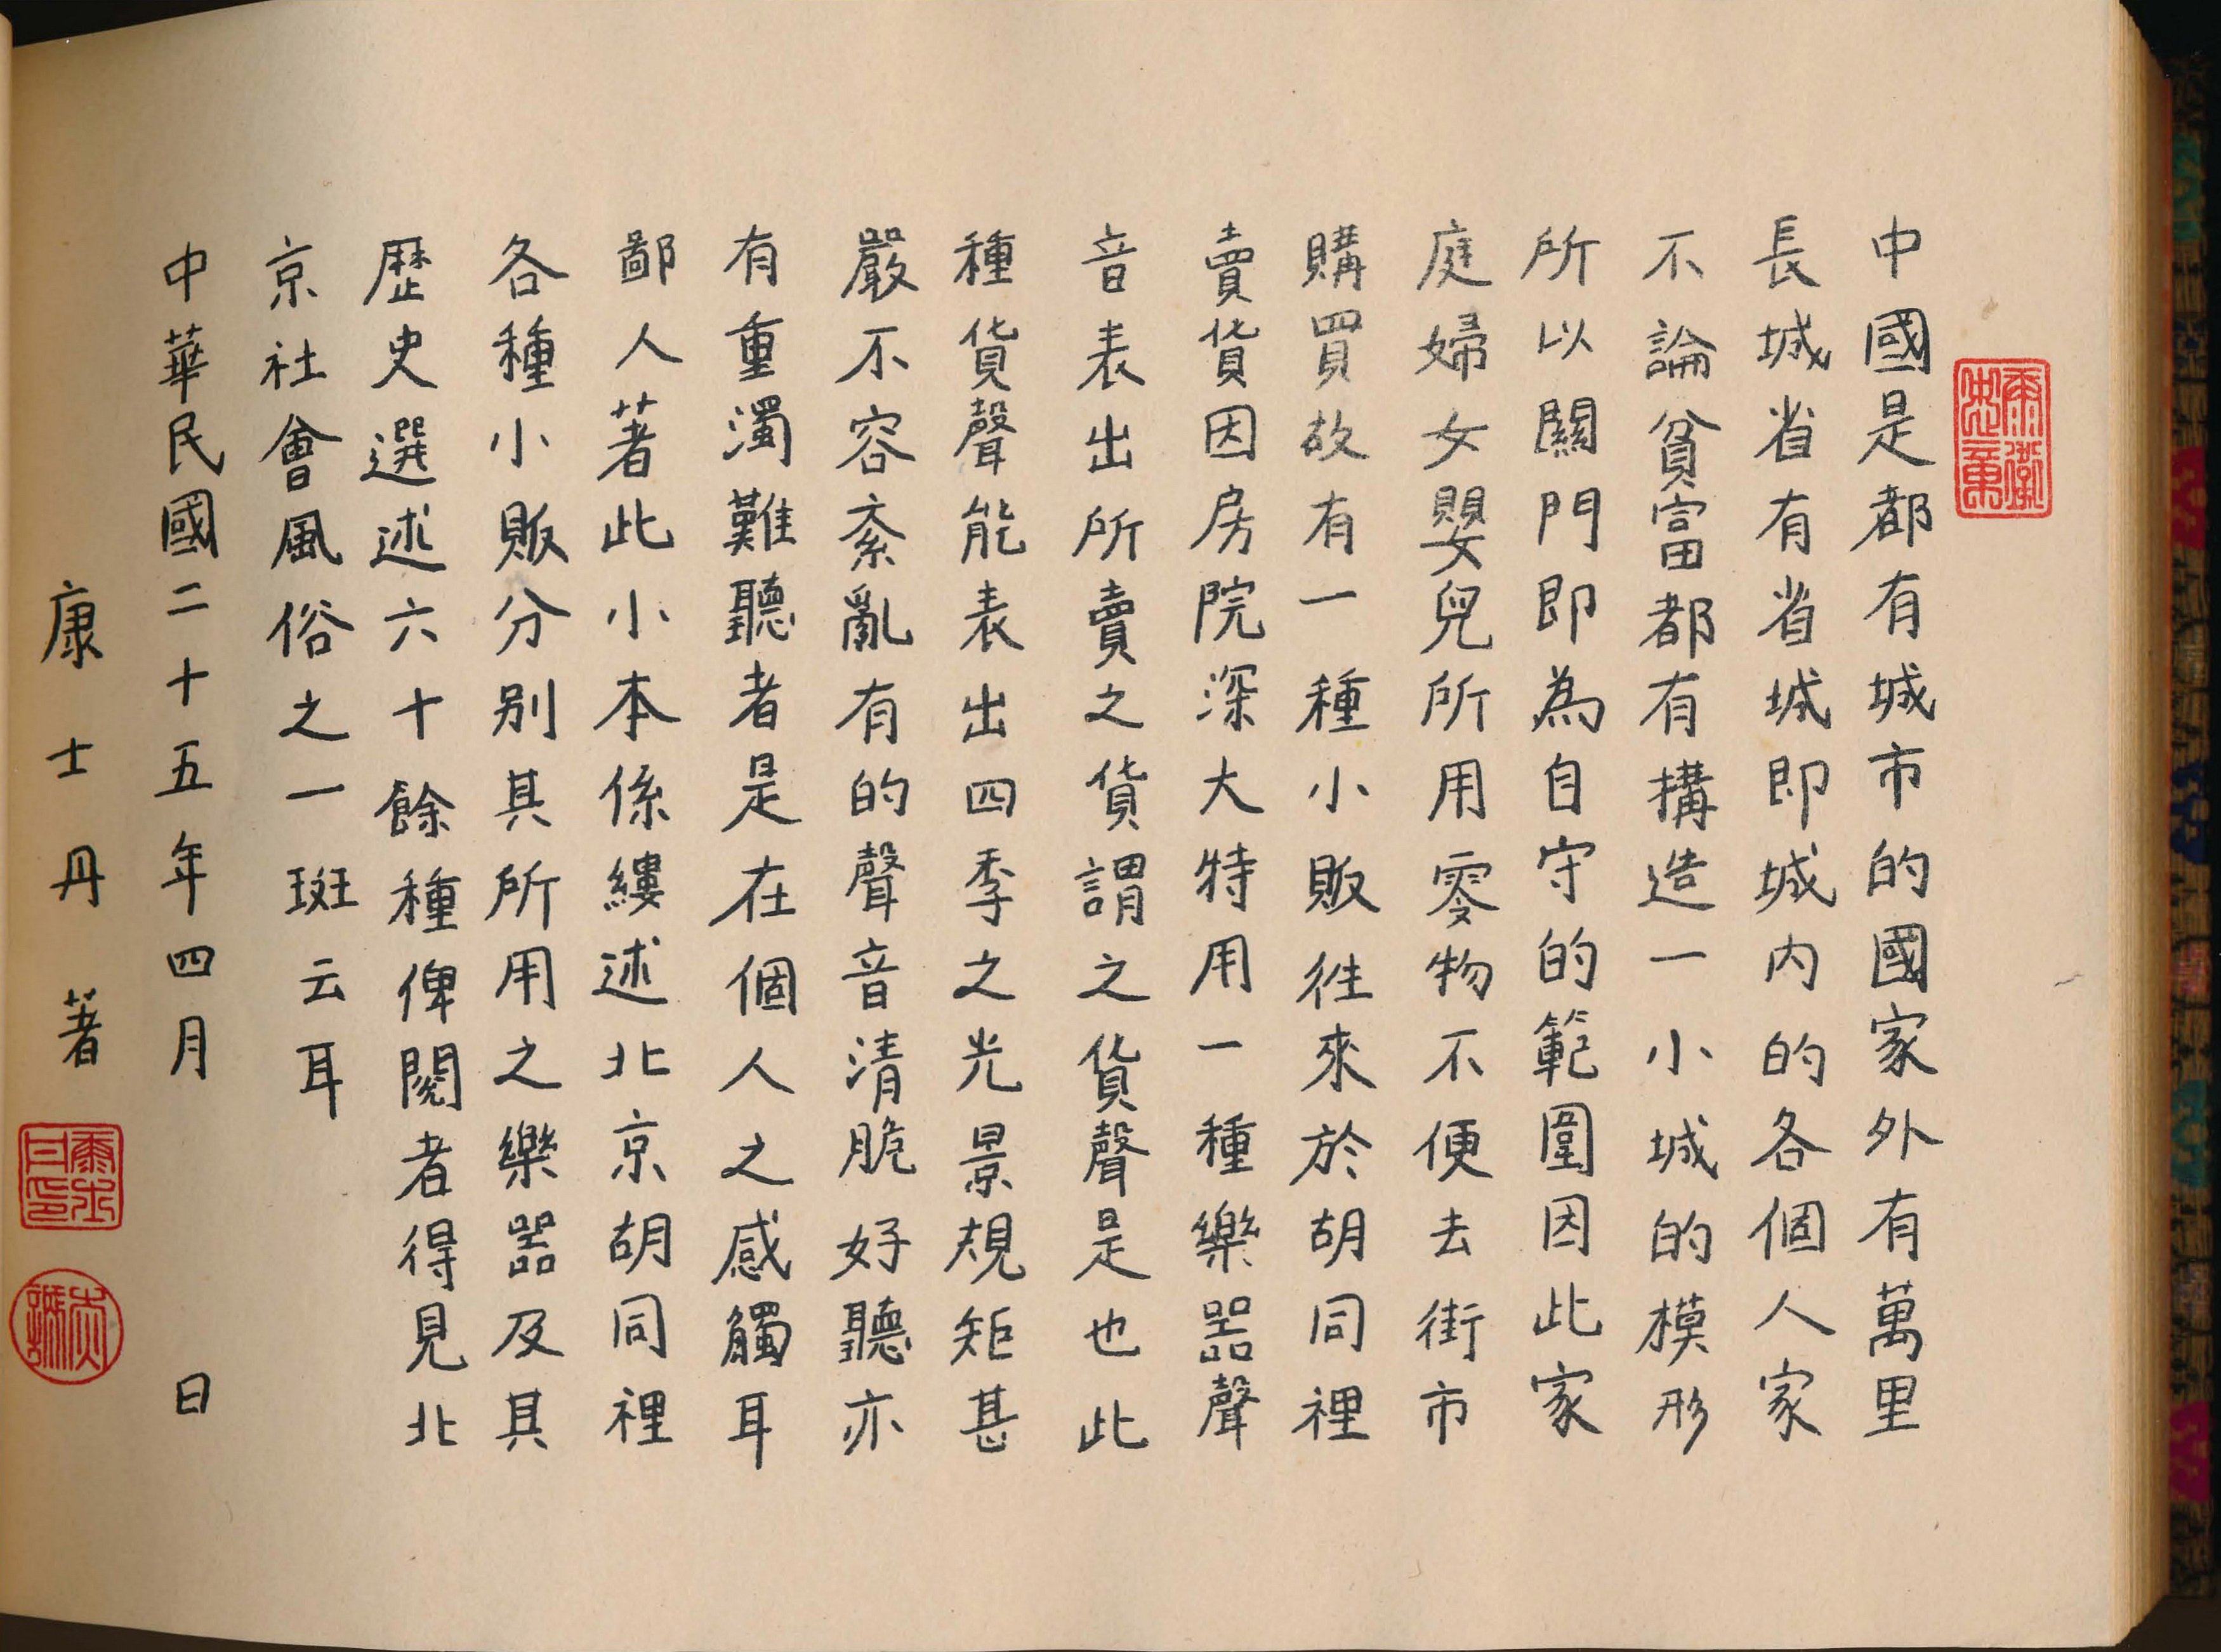 中國是都有城市的國家外有萬里
長城省有省城即城內的各個人家
不論貧富都有搆造一小城的模形
所以關門即為自守的範圍因此家
庭婦女嬰兒所用零物不便去街市
購買故有一種小販往來於胡同裡
賣貨因房院深大特用一種樂器聲
音表出所賣之貨謂之貨聲是也此
種貨聲能表出四季之光景規矩甚
嚴不容紊亂有的聲音清脆好聽亦
有重濁難聽者是在個人之感觸耳
鄙人著此小本係縷述北京胡同裡
各種小販分別其所用之樂器及其
歷史選述六十餘種俾閱者得見北
京社會風俗之一斑云耳
中華民國二十五年四月 日
康士丹著